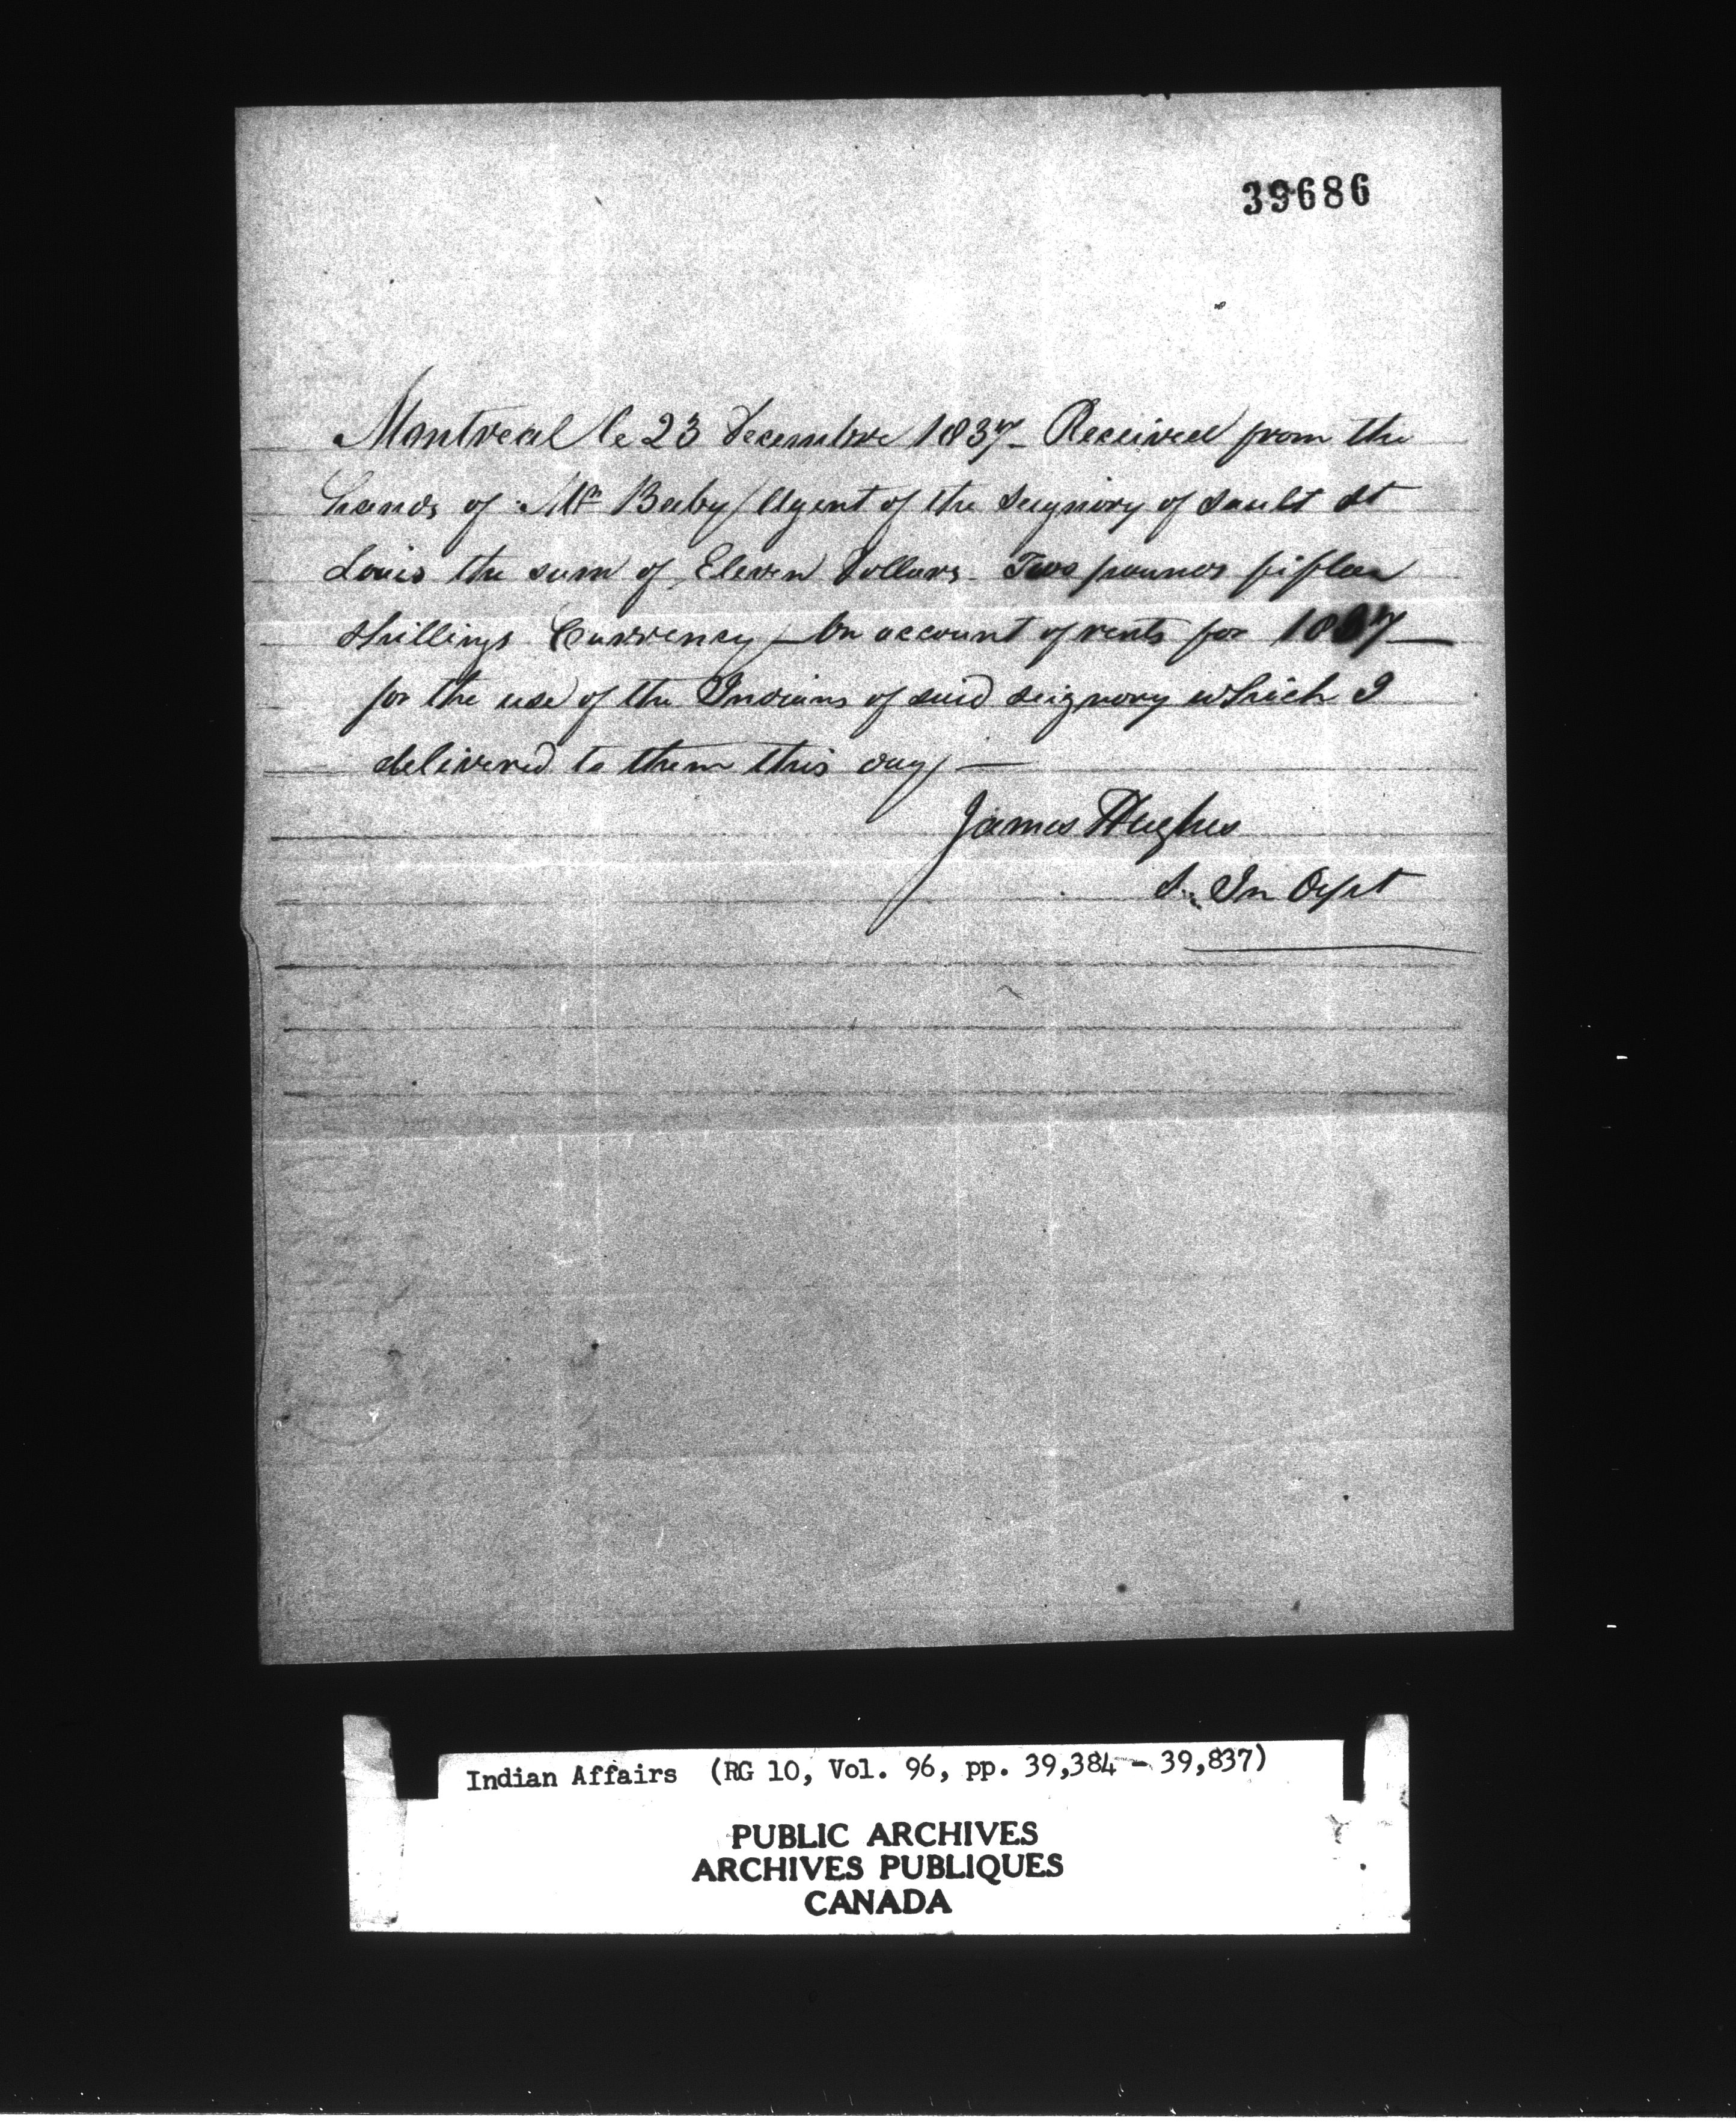 39686
Montreal le 23 Decembre 1837 - Received from the
hands of Mr Baby / Agent of the Seignory of Sault St
Louis the sum of Eleven Dollars - Two pounds fifteen
Shillings Currency - On account of rents for 1837 —
for the use of the Indians of said Seignory which I
delivered to them this day —
James Hughes
S. In Dept
Indian Affairs (RG 10, Vol. 96, pp. 39,384 - 39,837)
PUBLIC ARCHIVES
ARCHIVES PUBLIQUES
CANADA